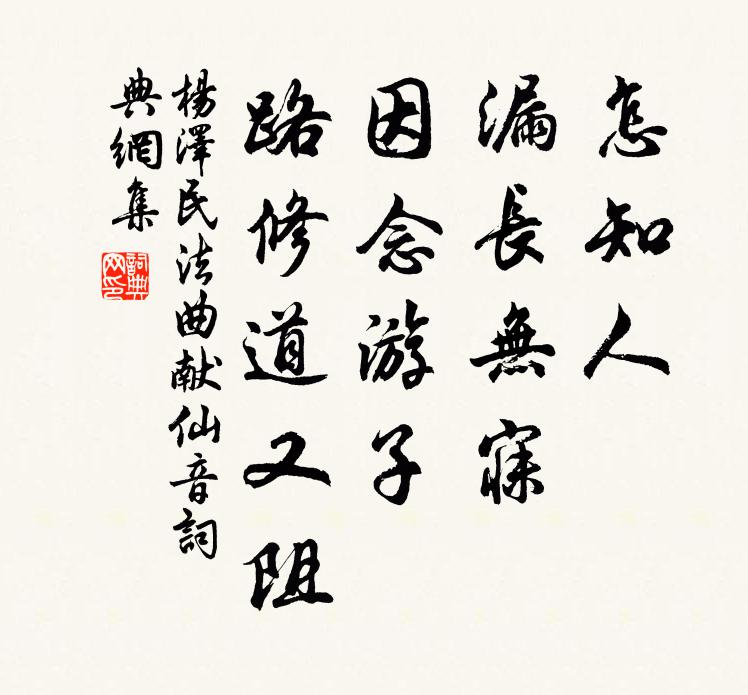 怎知人
漏長無寐
因念游子
路修道又阻
楊澤民法曲献仙音詞
典網集
詞典
网印